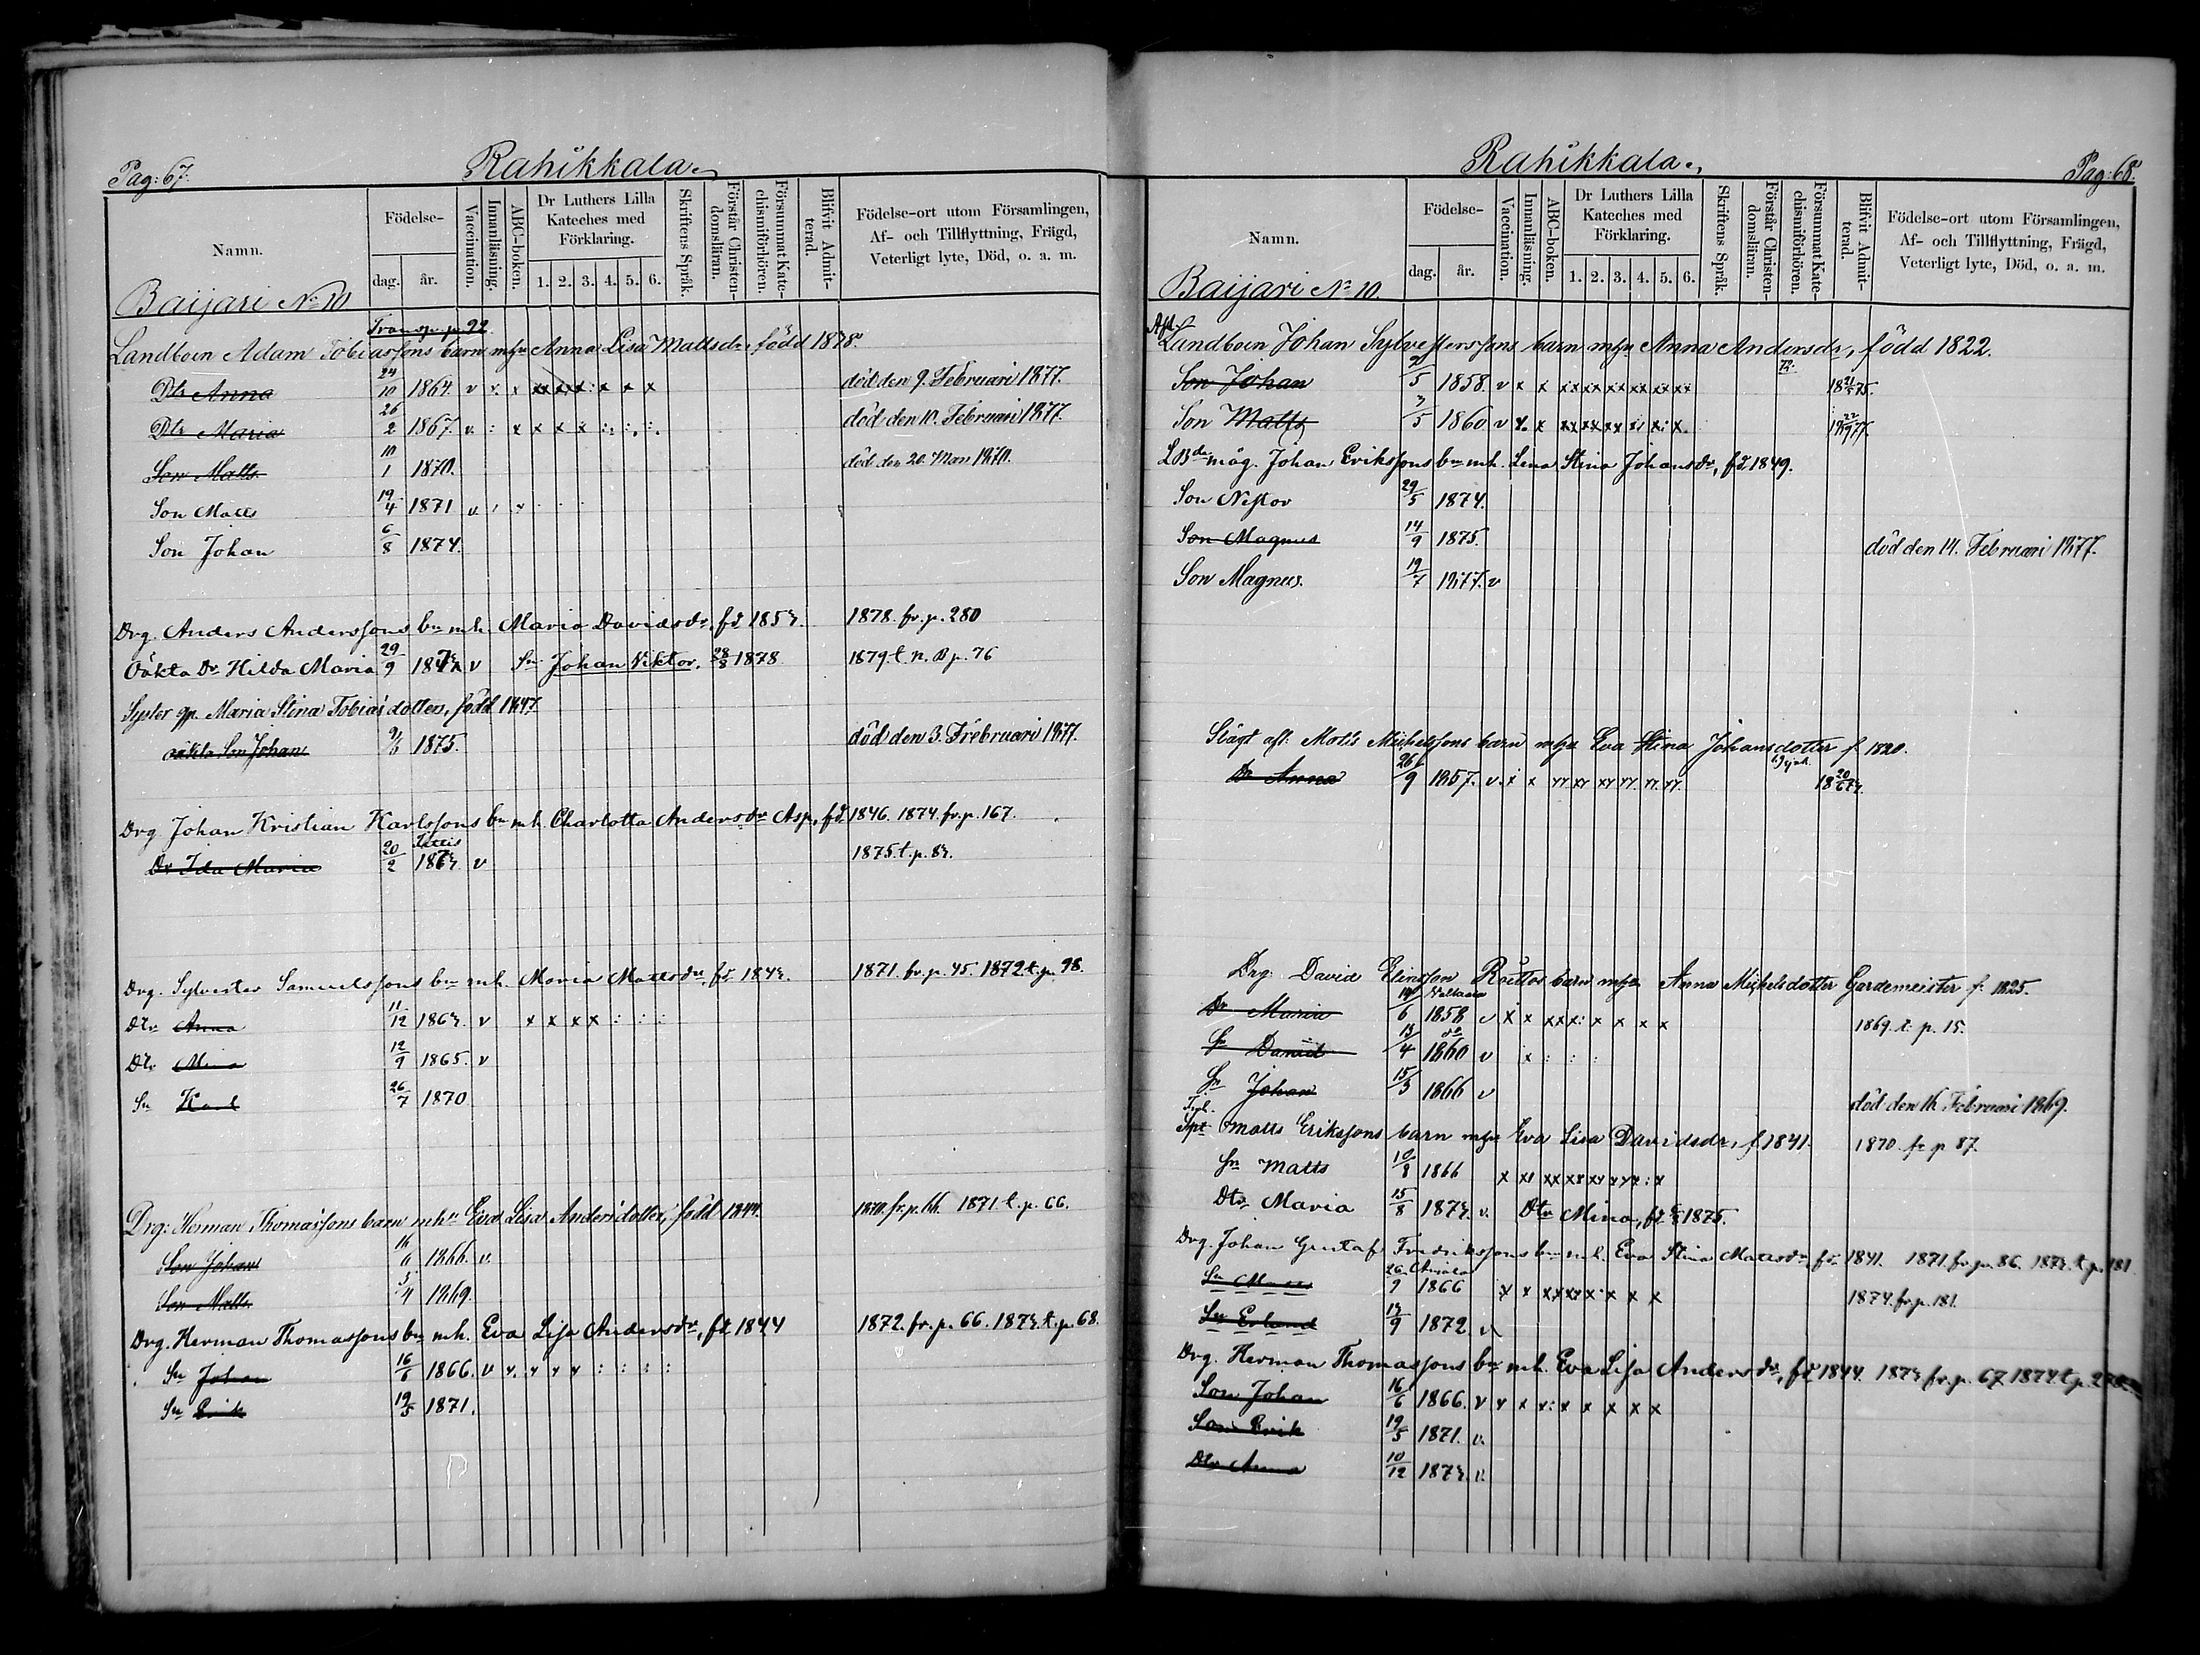 Pag: 67.
Rahikkala.
Namn.
Födelse-
dag.
år.
Vaccination.
Innanläsning.
ABC-boken.
Dr Luthers Lilla Kateches med Förklaring.
1. 2. 3. 4. 5. 6.
Skriftens Språk.
Förstår Christen-domsläran.
Försummat Kate-chismiförhören.
Blifvit Admit-terad.
Födelse-ort utom Församlingen,
Af- och Tillflyttning, Frägd,
Veterligt lyte, Död, o. a. m.
Baijari No 10
Transp. p. 92
Landboen Adam Tobiassons barn mhu Anna Lisa Mattsdr född
Dtr Anna 24/10 1864. v död den 9. Februari 1877.
Dtr Maria 26/2 1867 v. död den 10. Februari 1877.
Son Matts 10/1 1870. död den 20. Mars 1870.
Son Matts 19/4 1871 v
Son Johan 6/8 1874.
Drg. Anders Anderssons bn m.h. Maria Davidsdr, fd 1853. 1878. fr. p. 280
Oäkta Dr Hilda Maria 29/9 v Sn Johan Viktor, 28/8 1878 1879. t. n. B p. 76
Syster qp. Maria Stina Tobiasdotter, född 1847.
oäkta Son Johan 1875. död den 3. Februari 1877.
Drg Johan Kristian Karlssons bn m.h. Charlotta Andersdr Asp, fd 1846. 1874. fr. p. 167.
Dr Ida Maria 20/2 v 1875. t. p. 83.
Drg. Sylvester Samuelssons bn m.h. Maria Mattsdr, fd 1843. 1871. fr. p. 45. 1872 t. p. 98.
Dtr Anna 11/12 1863. v x x x x : : :
Dtr Mina 12/9 1865. v
Sn Karl 26/7 1870
Drg: Herman Thomassons barn mhu Eva Lisa Andersdotter, född 1844. 1870. fr. p. 66. 1871 t. p. 66.
Son Johan 16/6 1866. v.
Son Matts 5/4 1869.
Drg. Herman Thomassons bn m.h. Eva Lisa Andersdr, fd 1844 1872. fr. p. 66. 1873. t. p. 68.
Sn Johan 16/6 1866. v
Sn Erik 19/5 1871.
Rahikkala.
Pag: 68.
Namn.
Födelse-
dag.
år.
Vaccination.
Innanläsning.
ABC-boken.
Dr Luthers Lilla Kateches med Förklaring.
1. 2. 3. 4. 5. 6.
Skriftens Språk.
Förstår Christen-domsläran.
Försummat Kate-chismiförhören.
Blifvit Admit-terad.
Födelse-ort utom Församlingen,
Af- och Tillflyttning, Frägd,
Veterligt lyte, Död, o. a. m.
Baijari No 10.
Afl.
Landboen Johan Sylvesterssons barn mhu Anna Andersdr, född 1822.
Son Johan 1858. v x x 18 21/5 75.
Son Matts 3/5 1860 v
LBde måg. Johan Erikssons bn m.h. Lena Stina Johansdr, fd 1849.
Son Nestor 29/5 1874.
Son Magnus 14/9 1875. död den 14. Februari 1877.
Son Magnus. 19/7 1877. v
Slägt afl: Matts Michelssons barn mhu Eva Stina Johansdotter f 1820.
Dr Anna 26/9 1857. v.
Drg: David Eliasson Roittos barn mhu Anna Michelsdotter Gardemeister f. 1825.
Dr Maria 1858 v 1869. t. p. 15.
Sn Daniel 13/4 1860 v
Sn Johan 15/3 1866 v död den 16 Februari 1869.
Matts Erikssons barn mhu Eva Lisa Davidsdr, f. 1841. 1870. fr p 87.
Sn Matts 10/8 1866
Dtr Maria 15/8 1873. v. Dtr Mina, fd 1875.
Drg. Johan Gustaf Fredrikssons bn m.h. Eva Stina Mattsdr, fd 1841. 1871. fr. p. 86. 1873. t. p. 181
Sn Matts 26/9 1866 1874. fr. p. 181.
Sn Erland 13/9 1872. v
Drg. Herman Thomassons bn m.h. Eva Lisa Andersdr, fd 1844. 1873 fr. p. 67. 1874. t. p.
Son Johan 16/6 1866. v
Son Erik 19/5 1871. v.
Dtr Anna 10/12 1873. v.